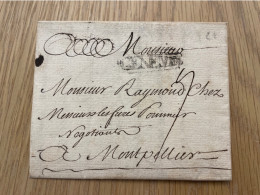 Monsieur
Monsieur Raymond Chez
Messieurs les freres
Negotiants
A Montpellier